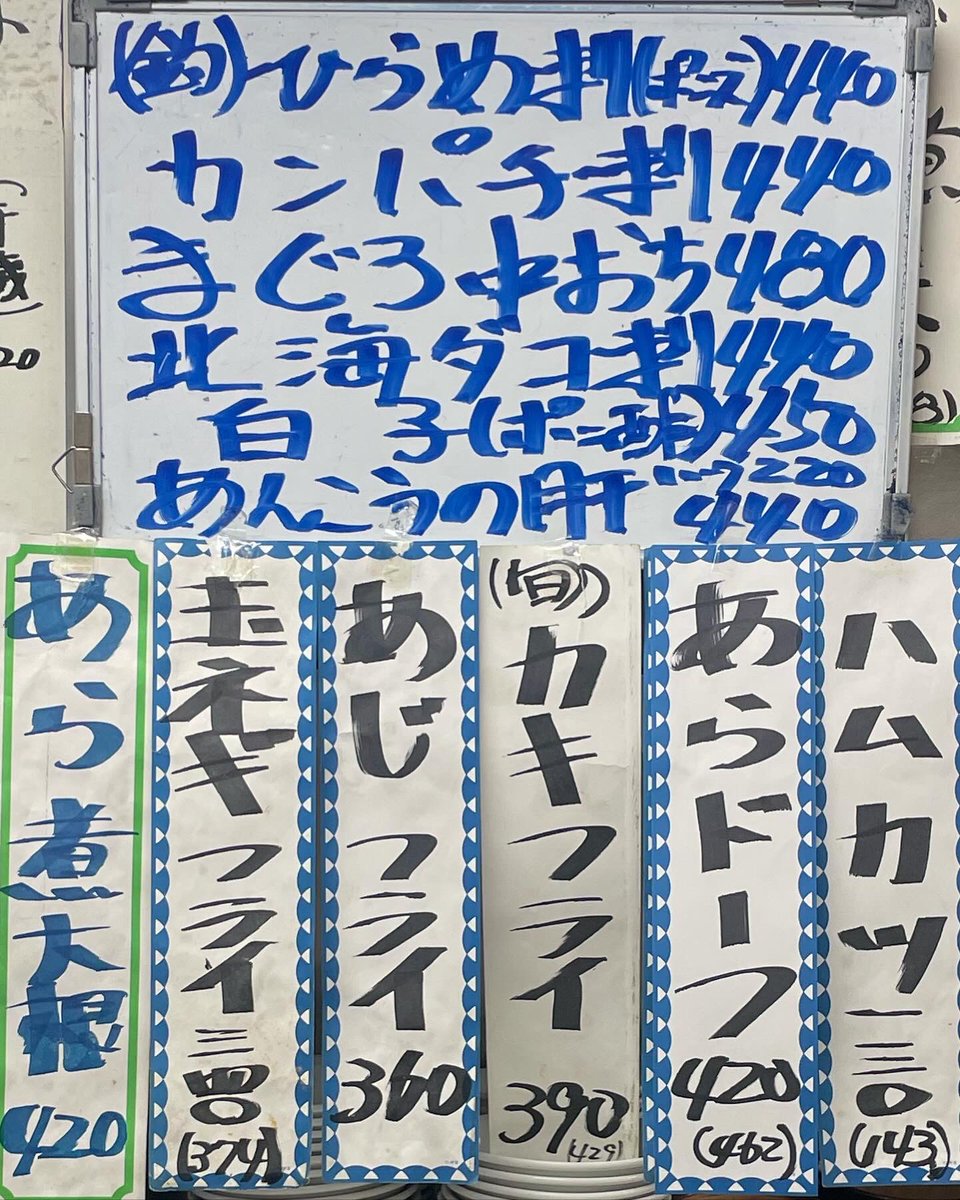 (釣)ひらめ刺 440
カンパチ刺440
まぐろ中おち480
北海ダコ刺440
白子(ポン酢)450
あんこうの肝 ハーフ220
440
ハムカツ一三〇
(143)
あらドーフ
420
(462)
(旬)
カキフライ
390
(429)
あじフライ
360
玉ネギフライ三四〇
(374)
あら煮大根
420